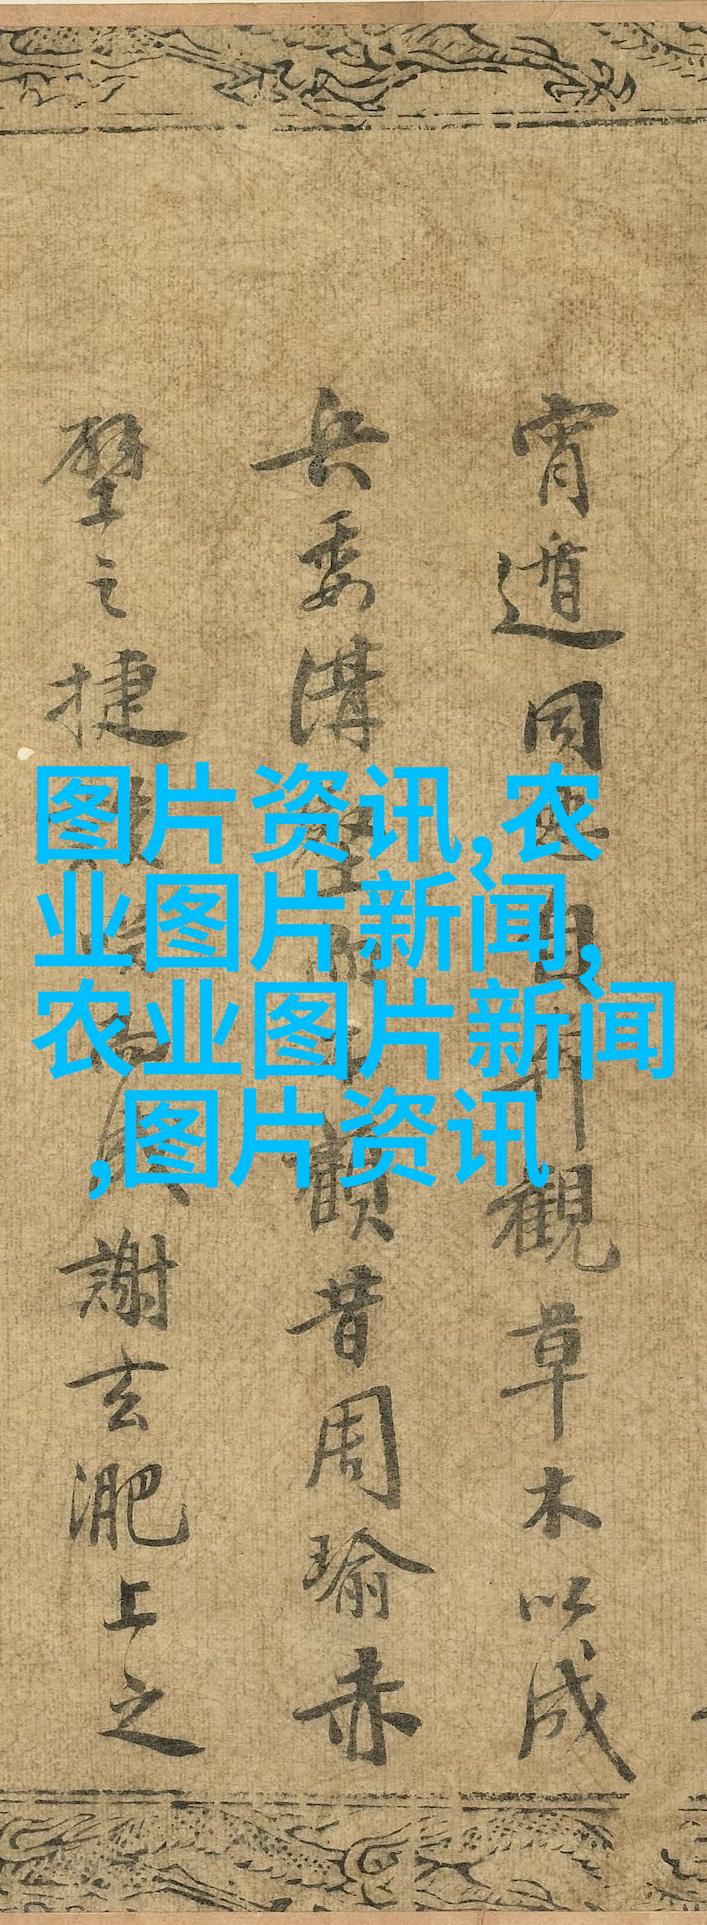 宵遁同恶自奔觀草木以成
兵委溝壑而不顧昔周瑜赤
壁之捷 謝玄淝上之
图片资讯,农
业图片新闻,
农业图片新闻
,图片资讯